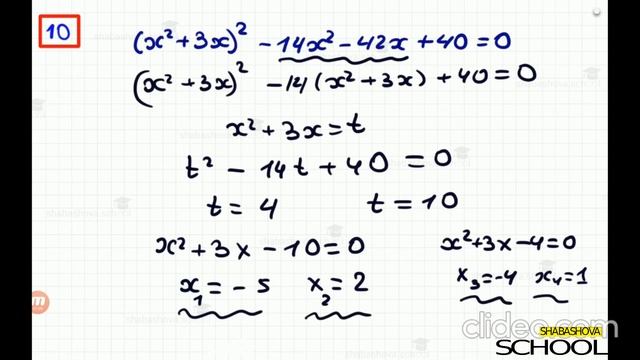 10
(x²+3x)² - 14x² - 42x + 40 = 0
(x² + 3x)² - 14(x² + 3x) + 40 = 0
x² + 3x = t
t² - 14t + 40 = 0
t = 4 t = 10
x² + 3x - 10 = 0 x² + 3x - 4 = 0
x₁ = - 5 x₂ = 2 x₃ = -4 x₄ = 1
clideo.com
SHABASHOVA
SCHOOL